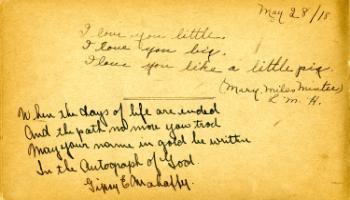 May 28/18.
I love you little.
I love you big.
I love you like a little pig.
(Mary Miles Minter)
E. M. H.
When the days of life are ended
And the path no more you trod
May your name in gold be written
In the Autograph of God.
Gipsy E. Mahaffy.